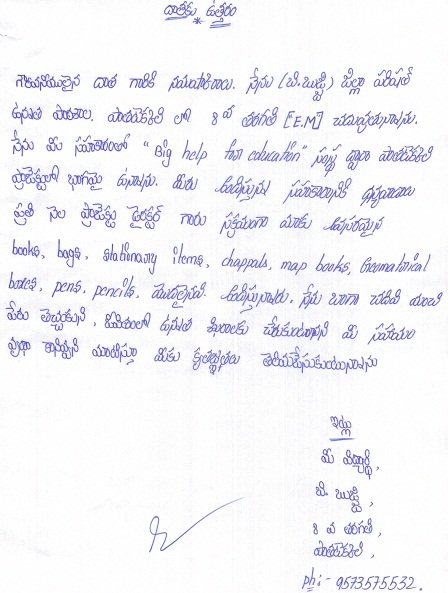 దాతకు ఉత్తరం
గౌరవనీయులైన దాత గారికి నమస్కారాలు. నేను (బి.బుజ్జి) జిల్లా పరిషత్
ఉన్నత పాఠశాల. పాతటెక్కలి లో 8 వ తరగతి [E.M] చదువుతున్నాను.
నేను మీ సహకారంతో "Big help for education" సంస్థ ద్వారా పాతటెక్కలి
ప్రాజెక్టులో భాగమై ఉన్నాను. మీరు అందిస్తున్న సహకారానికి ధన్యవాదాలు
ప్రతి నెల ప్రాజెక్టు డైరెక్టర్ గారు సక్రమంగా మాకు అవసరమైన
books, bags, stationary items, chappals, map books, Geomatorical
boxes, pens, pencils, మొదలైనవి. అందిస్తున్నారు. నేను బాగా చదివి మంచి
పేరు తెచ్చుకుని, జీవితంలో ఉన్నత శిఖరాలకు చేరుకుంటానని మీ సహాయం
వృధా కానివ్వని మాటిస్తూ మీకు కృతజ్ఞతలు తెలియచేసుకుంటున్నాను
ఇట్లు
మీ విద్యార్థి,
బి. బుజ్జి,
8 వ తరగతి,
పాతటెక్కలి,
ph:- 9573575532.